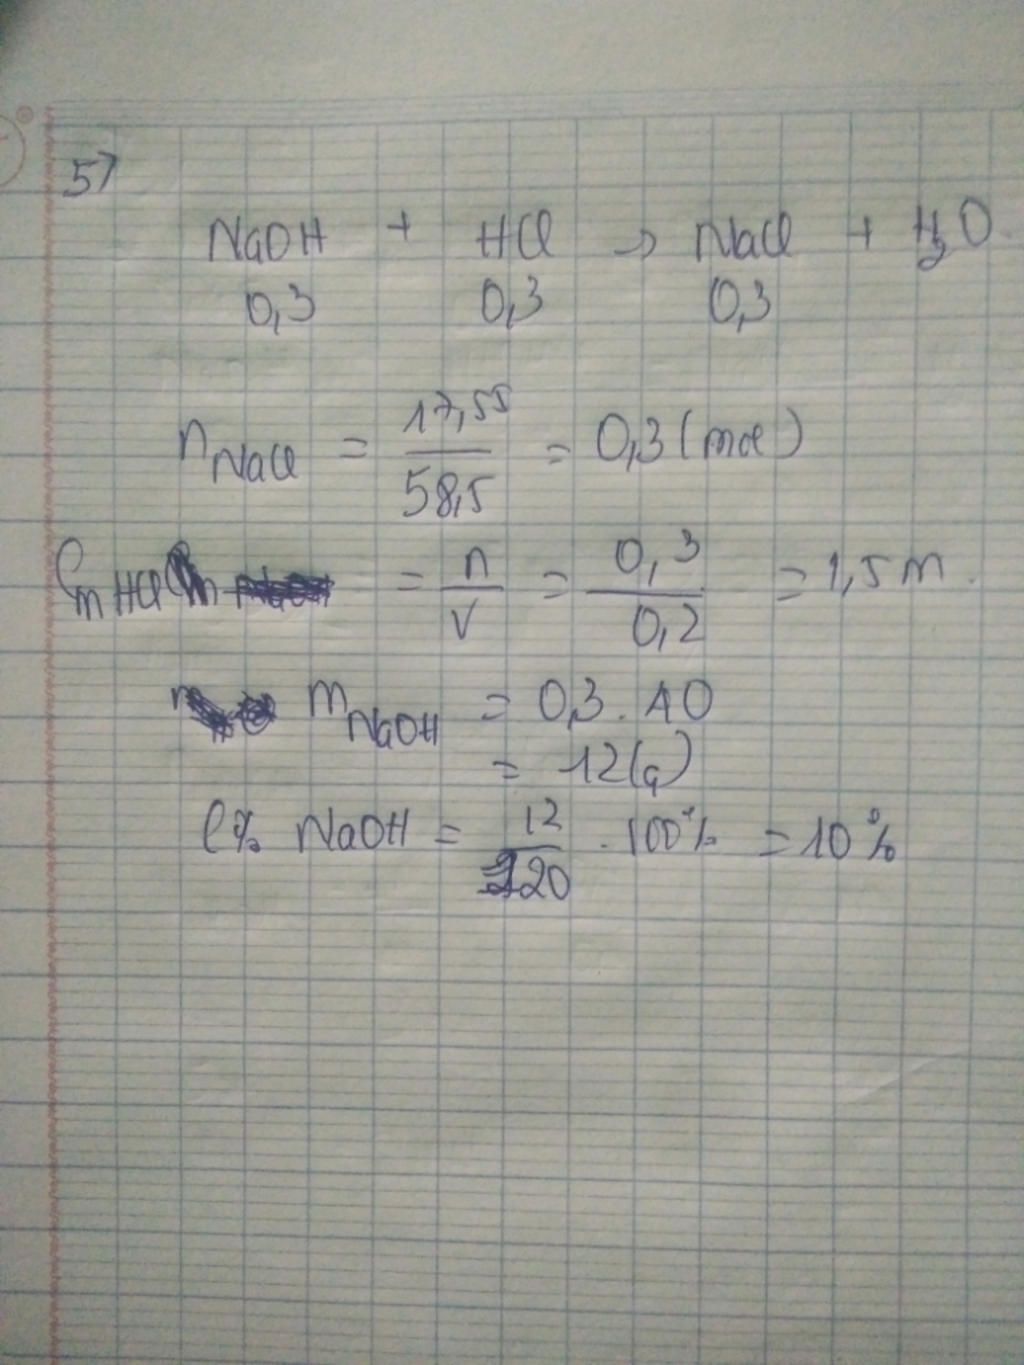 57
NaOH + HCl → NaCl + H₂O
0,3 0,3 0,3
n NaCl = 17,55 / 58,5 = 0,3 (mol)
Cm HCl = n / V = 0,3 / 0,2 = 1,5 M.
m NaOH = 0,3 . 40
= 12 (g)
C% NaOH = 12 / 120 . 100% = 10%